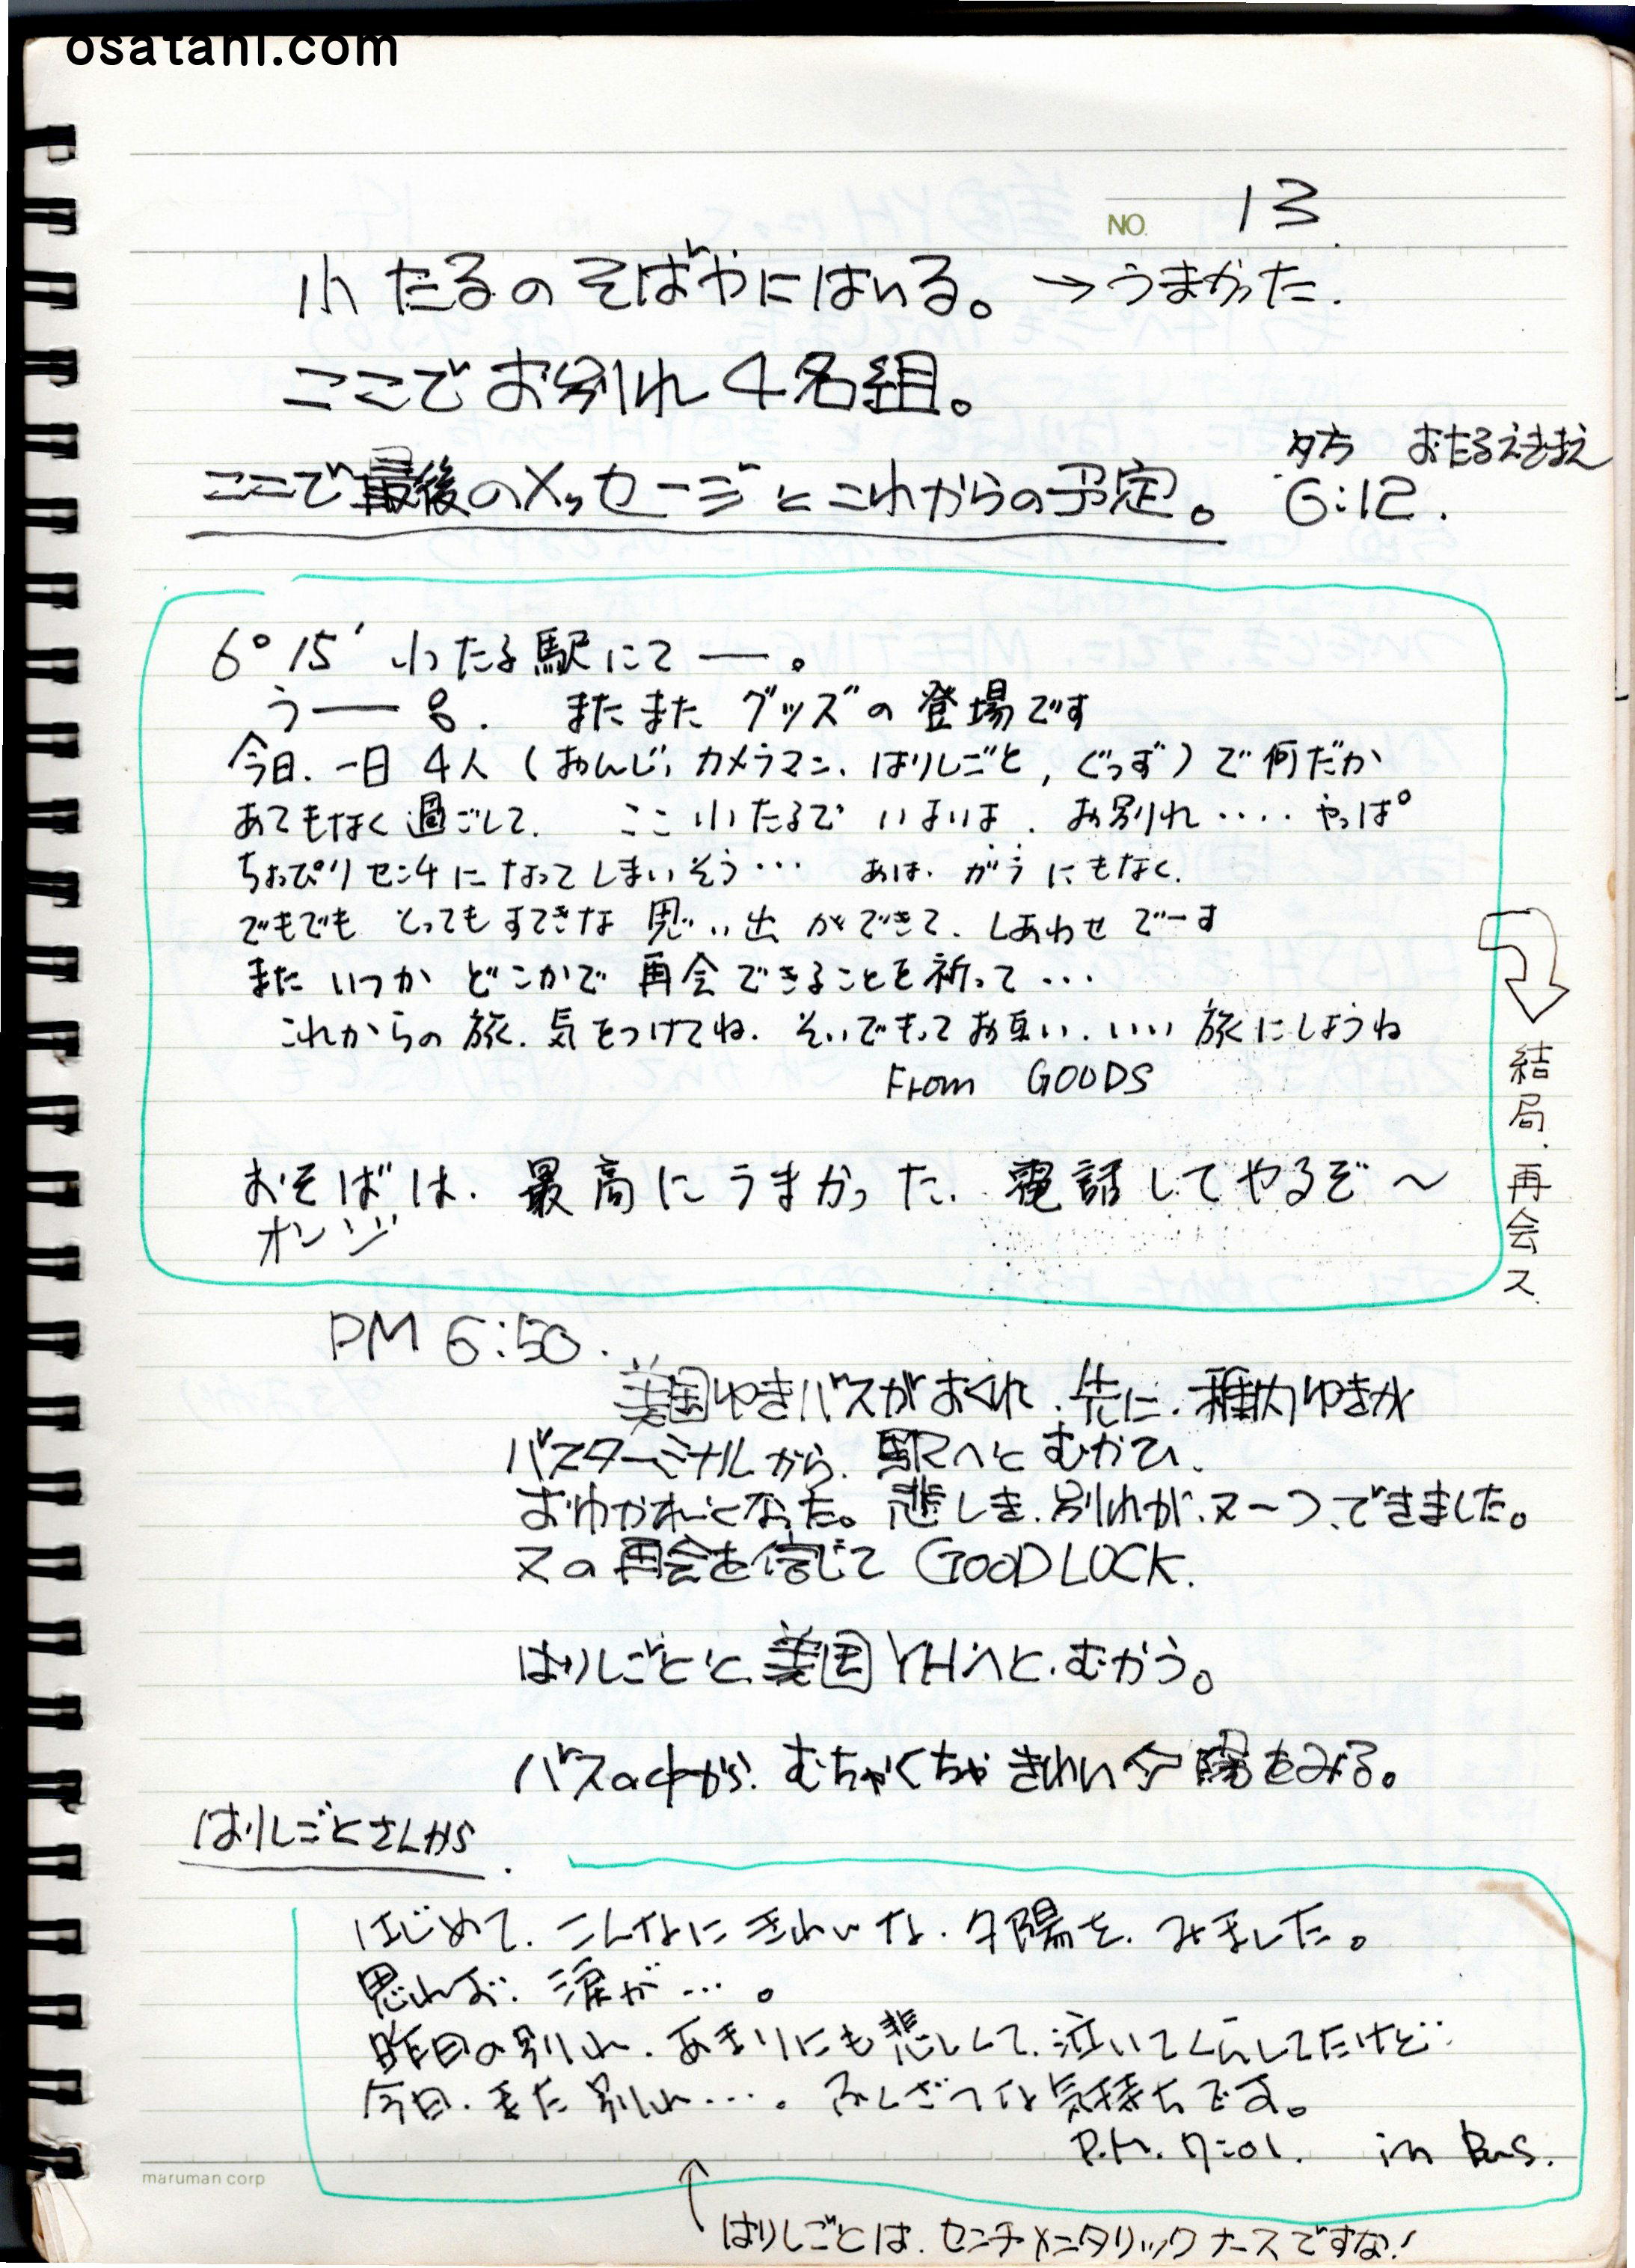 osatani.com
NO. 13
小たるのそばやにはいる。→うまかった.
ここでお別れ4名組。
夕方 おたるえきまえ
ここで最後のメッセージとこれからの予定。 6:12.
6°15′ 小たる駅にて ―。
う―― 8. またまた グッズの登場です
今日.一日 4人(おんじ,カメラマン、はりしごと,ぐっず)で何だか
あてもなく過ごして. ここ小たるで いよいよ.お別れ‥‥やっぱ
ちょっぴりセンチになってしまいそう… あは.がらにもなく.
でもでも とってもすてきな 思い出ができて.しあわせでーす
また いつか どこかで 再会できることを祈って…
これからの旅.気をつけてね.そいでもってお互い.いい旅にしようね
From GOODS
おそばは.最高にうまかった.電話してやるぞ〜
オンジ
結局.再会ス.
PM 6:50.
美国ゆきバスがおくれ.先に.稚内ゆきが
バスターミナルから.駅へとむかひ.
おわかれとなった。悲しき.別れが.又一つ.できました。
又の再会を信じて GOOD LOCK.
はりしごとと美国YHへと.むかう。
バスの中から.むちゃくちゃきれい夕陽をみる。
はりしごとさんから.
はじめて.こんなにきれいな.夕陽を.みました。
思わず.涙が…。
昨日の別れ.あまりにも悲しくて.泣いてくらしてたけど‥
今日.また別れ…。ふくざつな気持ちです。
P.M. 7:01. in Bus.
はりしごとは.センチメンタリックナースですな!
maruman corp